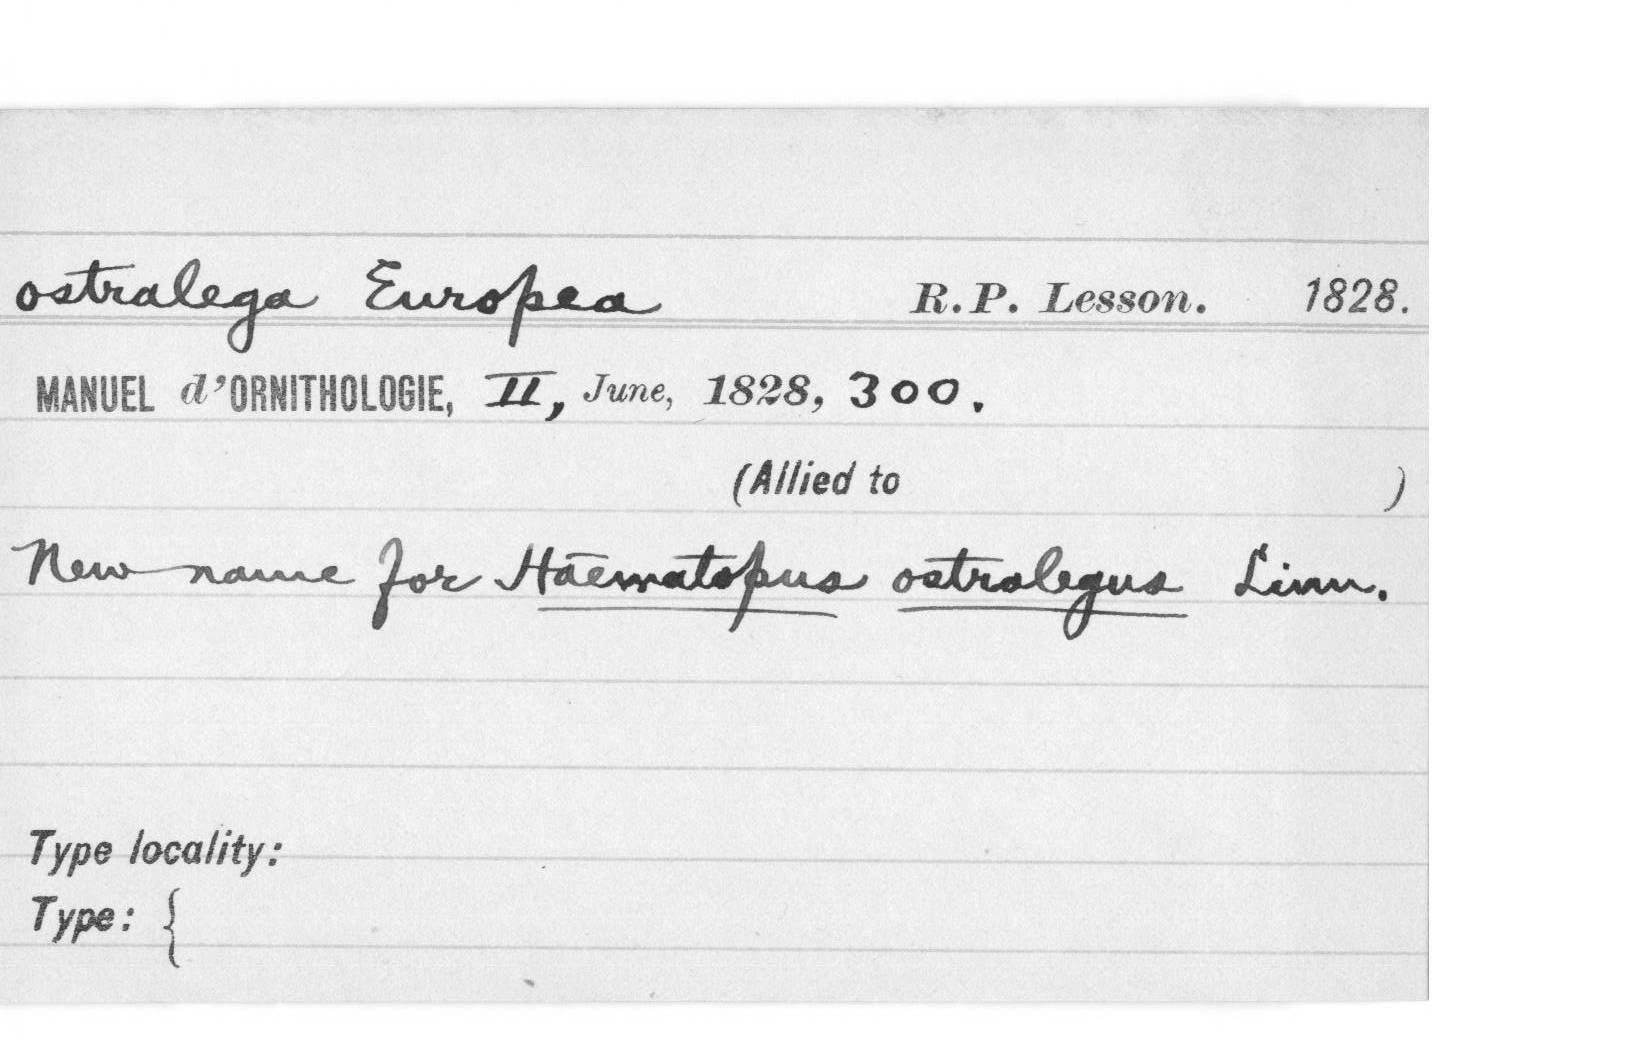 ostralega Europea R.P. Lesson. 1828.
MANUEL d'ORNITHOLOGIE, II, June, 1828, 300.
(Allied to )
New name for Haematopus ostralegus Linn.
Type locality:
Type: {